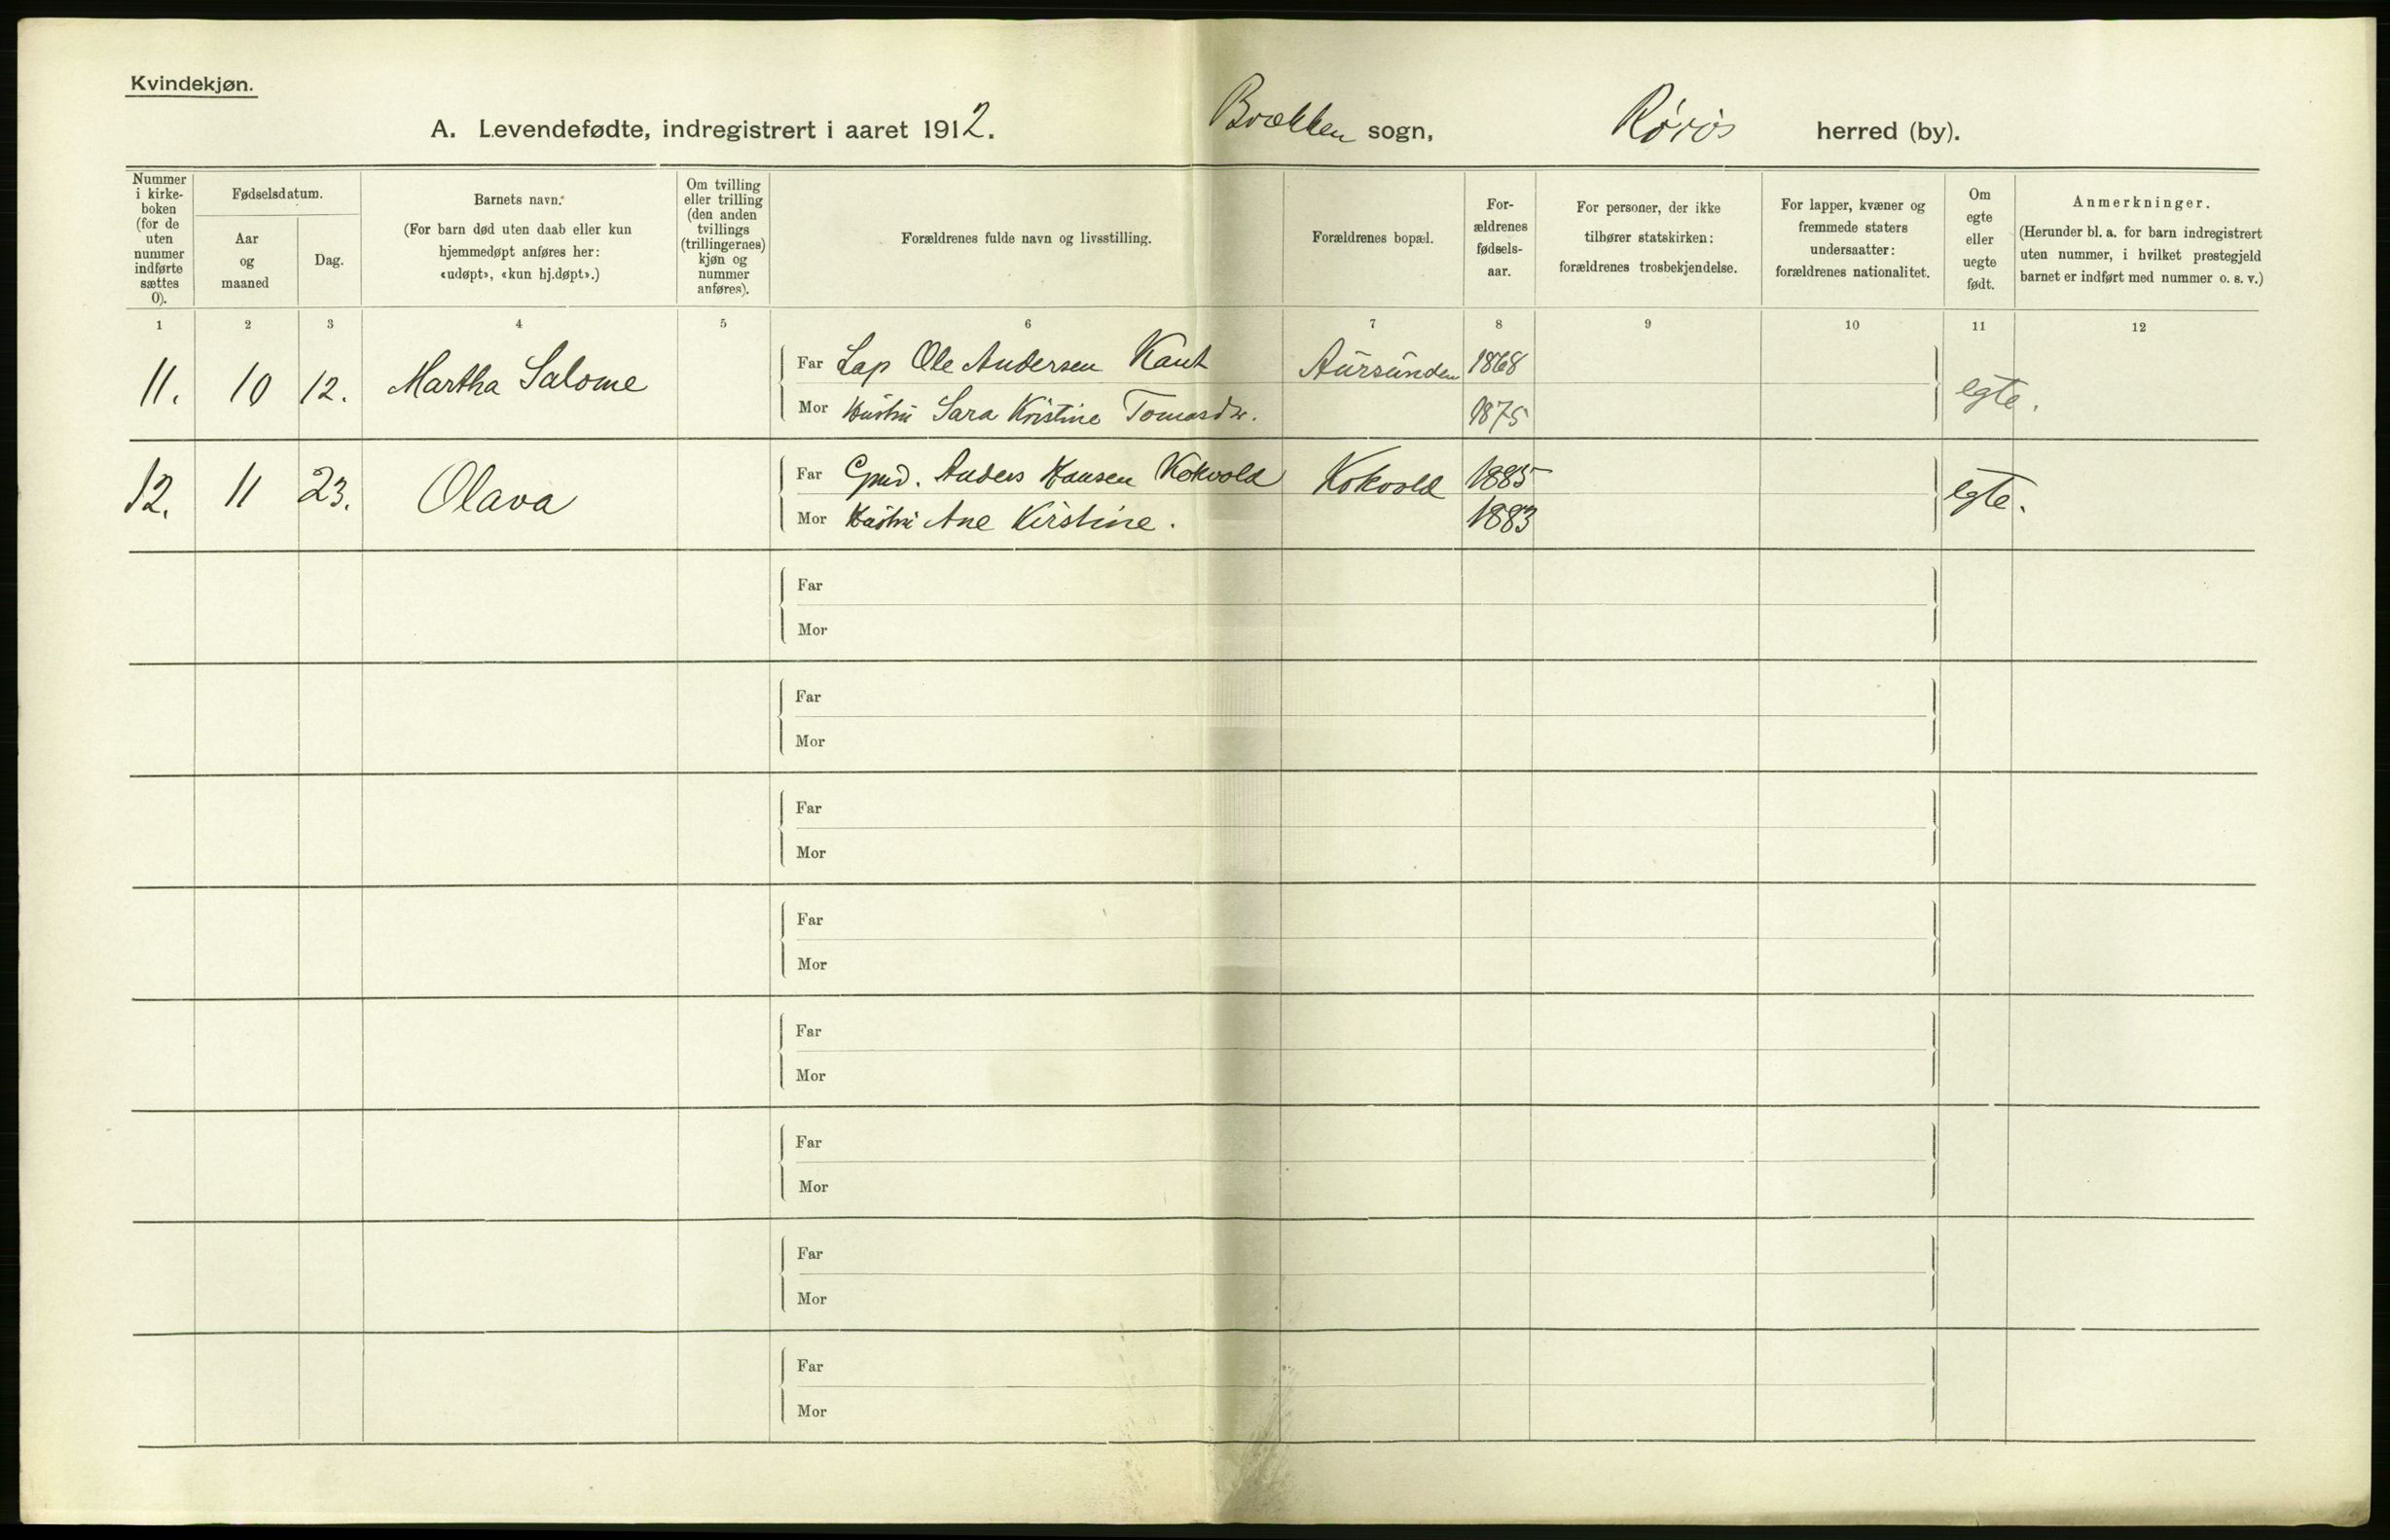 Kvindekjøn.
A. Levendefødte, indregistrert i aaret 1912. Brækken sogn, Røros herred (by).
Nummer i kirke-boken (for de uten nummer indførte sættes 0).
Fødselsdatum.
Aar og maaned
Dag.
Barnets navn.
(For barn død uten daab eller kun hjemmedøpt anføres her: «udøpt», «kun hj.døpt».)
Om tvilling eller trilling (den anden tvillings (trillingernes) kjøn og nummer anføres).
Forældrenes fulde navn og livsstilling.
Forældrenes bopæl.
For-ældrenes fødsels-aar.
For personer, der ikke tilhører statskirken: forældrenes trosbekjendelse.
For lapper, kvæner og fremmede staters undersaatter: forældrenes nationalitet.
Om egte eller uegte født.
Anmerkninger.
(Herunder bl. a. for barn indregistrert uten nummer, i hvilket prestegjeld barnet er indført med nummer o. s. v.)
1 2 3 4 5 6 7 8 9 10 11 12
11. 10 12. Martha Salome Far Lap Ole Andersen Kant Aursunden 1868 egte.
Mor Hustru Sara Kristine Tomasdtr. 1875
12. 11 23. Olava Far Gmd. Anders Hansen Kokvold Kokvold 1885 egte.
Mor Hustru Ane Kirstine. 1883
Far
Mor
Far
Mor
Far
Mor
Far
Mor
Far
Mor
Far
Mor
Far
Mor
Far
Mor